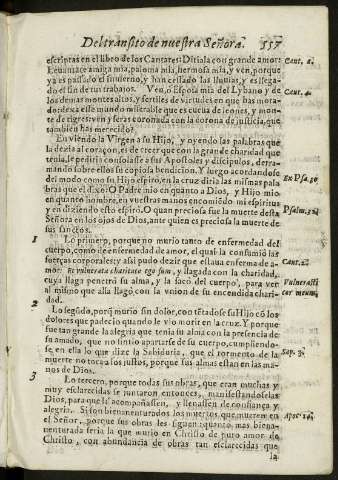 Del transito de nuestra Señora. 557
escriptas en el libro de los Cantares: Diriala con grande amor: Cant. 2.
Leuantate amiga mia, paloma mia, hermosa mia, y ven, porque
ya es passado el inuierno, y han cessado las lluuias, y es llega-
do el fin de tus trabajos. Ven, o Esposa mia del Lybano y de Cant. 4.
los demas montes altos, y fertiles de virtudes en que has mora-
do: dexa esse mundo miserable que es cueua de leones, y mon-
te de tigres: ven y seras coronada con la corona de justicia, que
tambien has merecido.
En viendo la Virgen a su Hijo, y oyendo las palabras que
la dezia al coraçon, es de creer que con la grande charidad que
tenia, le pediria consolasse a sus Apostoles y discipulos, derra-
mando sobre ellos su copiosa bendicion. Y luego acordandose
del modo como su Hijo espiró, en la cruz diria las mismas pala- Ex Psa. 30
bras que el dixo: O Padre mio en quanto a Dios, y Hijo mio
en quanto hombre, en vuestras manos encomiẽdo mi espiritu:
y en diziendo esto espiró. O quan preciosa fue la muerte desta Psalm.
Señora en los ojos de Dios, ante quien es preciosa la muerte de
sus sanctos.
1 Lo primero, porque no murio tanto de enfermedad del
cuerpo, como de enfermedad de amor, el qual la consumiò las
fuerças corporales: y assi pudo dezir que estaua enferma de a- Cant. 2.
mor: Et vulnerata charitate ego sum, y llagada con la charidad,
cuya llaga penetrò su alma, y la sacó del cuerpo, para ver Vulnerasti
al mismo que alla llagò, con la vnion de su encendida chari- cor meum.
dad.
2 Lo segũdo, porq̃ murio sin dolor, con tẽtandose su Hijo cõ los
dolores que padecio quando le vio morir en la cruz. Y porque
fue tan grande la alegria que tenia su alma con la presencia de
su amado, que no sintio apartarse de su cuerpo, cumpliendo-
se en ella lo que dize la Sabiduria, que el tormento de la Sap. 3.
muerte no toca a los justos, porque sus almas estan en las ma-
nos de Dios.
3 Lo tercero, porque todas sus obras, que eran muchas y
muy esclarecidas se juntaron entonces, manifestandoselas
Dios, para que la acompañassen, y llenassen de confiança y
alegria. Si son bienauenturados los muertos, que mueren en Apoc. 14.
el Señor, porque sus obras les siguen: quanto mas bienauen-
nturada seria la que murio en Christo de puro amor de
Christo, con abundancia de obras tan esclarecidas que
la